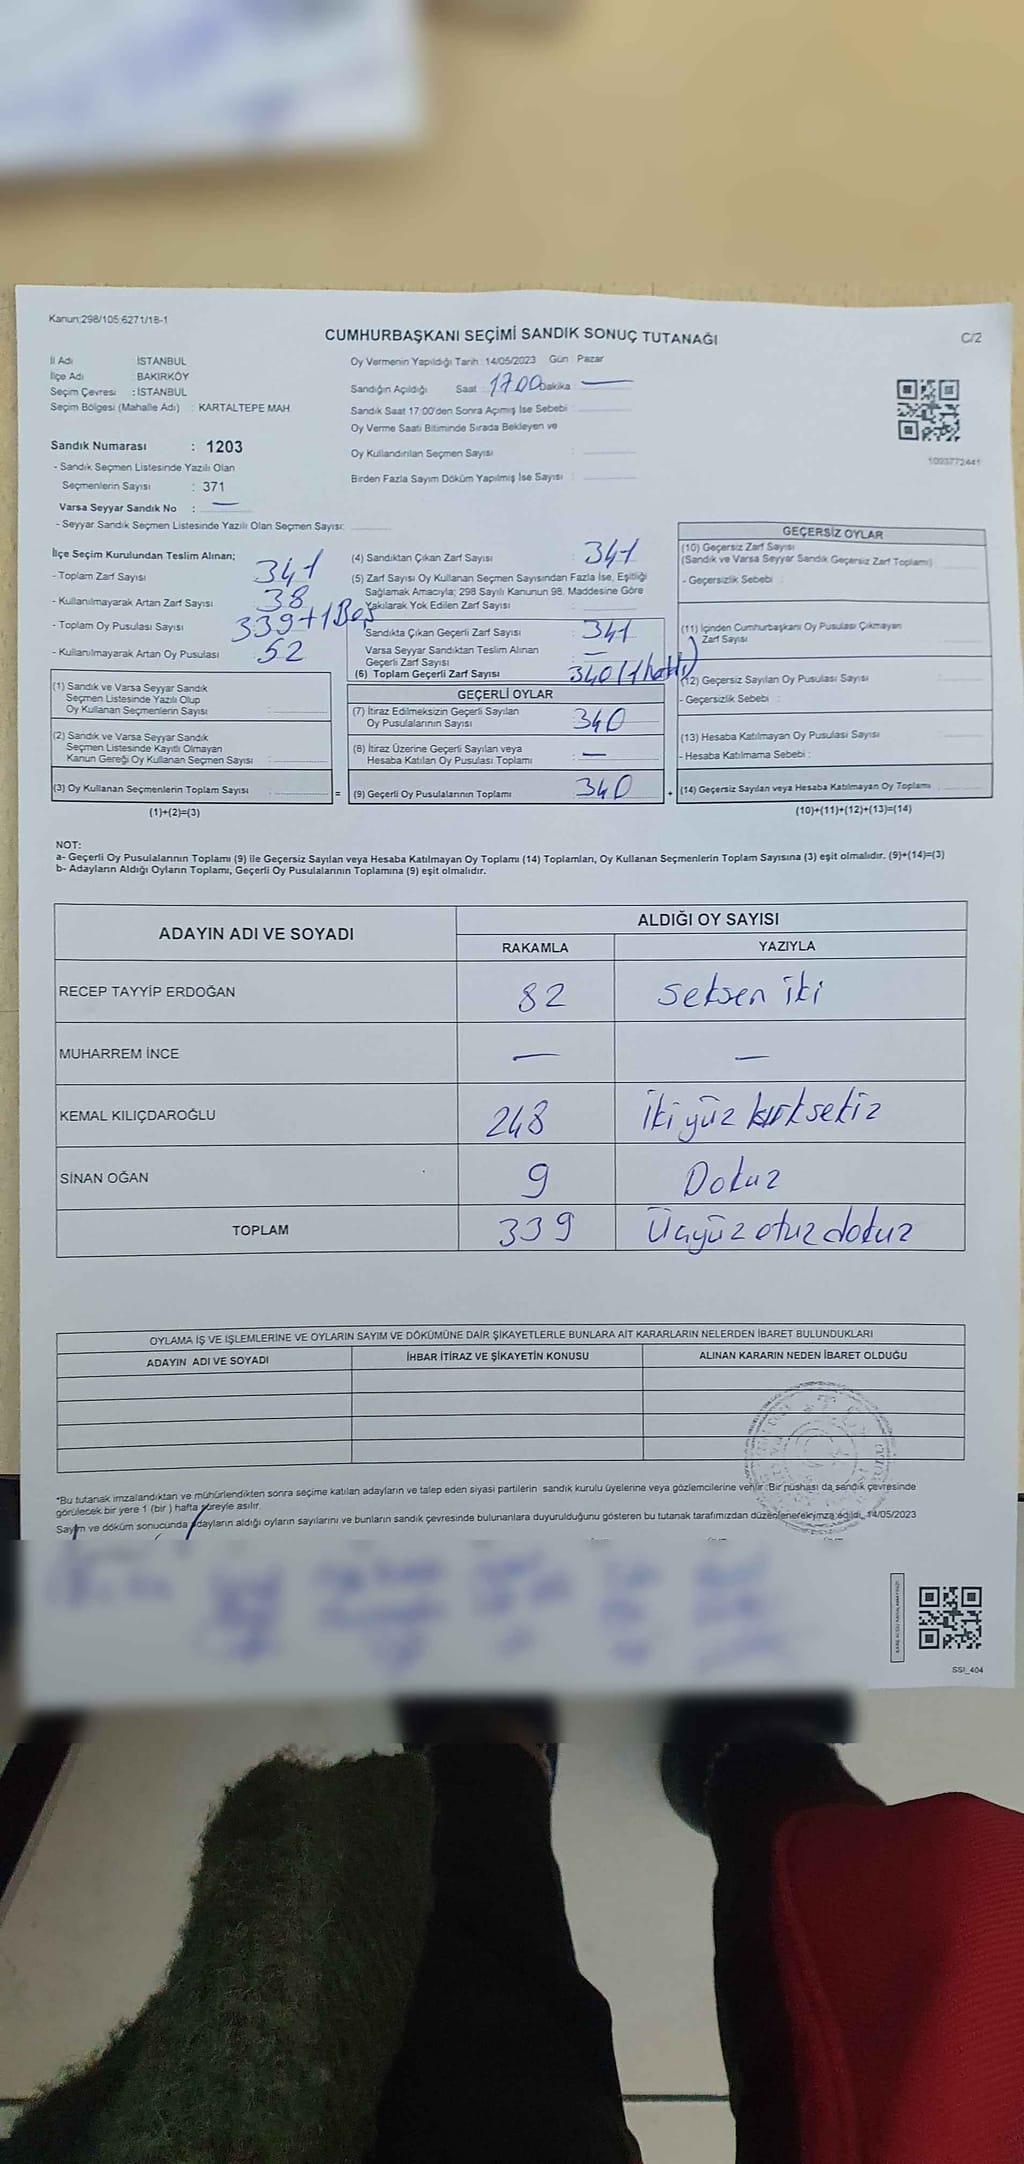 Kanun:298/105,6271/18-1
CUMHURBAŞKANI SEÇİMİ SANDIK SONUÇ TUTANAĞI
C/2
İl Adı : İSTANBUL
İlçe Adı : BAKIRKÖY
Seçim Çevresi : İSTANBUL
Seçim Bölgesi (Mahalle Adı) : KARTALTEPE MAH.
Oy Vermenin Yapıldığı Tarih : 14/05/2023 Gün : Pazar
Sandığın Açıldığı Saat : 17.00 Dakika : —
Sandık Saat 17:00'den Sonra Açımış İse Sebebi :
Oy Verme Saati Bitiminde Sırada Bekleyen ve
Oy Kullandırılan Seçmen Sayısı :
Birden Fazla Sayım Döküm Yapılmış İse Sayısı :
1093772441
Sandık Numarası : 1203
- Sandık Seçmen Listesinde Yazılı Olan
Seçmenlerin Sayısı : 371
Varsa Seyyar Sandık No : —
- Seyyar Sandık Seçmen Listesinde Yazılı Olan Seçmen Sayısı:
İlçe Seçim Kurulundan Teslim Alınan;
- Toplam Zarf Sayısı 341
- Kullanılmayarak Artan Zarf Sayısı 38
- Toplam Oy Pusulası Sayısı 339+1 Boş
- Kullanılmayarak Artan Oy Pusulası 52
(1) Sandık ve Varsa Seyyar Sandık
Seçmen Listesinde Yazılı Olup
Oy Kullanan Seçmenlerin Sayısı :
(2) Sandık ve Varsa Seyyar Sandık
Seçmen Listesinde Kayıtlı Olmayan
Kanun Gereği Oy Kullanan Seçmen Sayısı :
(3) Oy Kullanan Seçmenlerin Toplam Sayısı :
(1)+(2)=(3)
=
(4) Sandıktan Çıkan Zarf Sayısı : 341
(5) Zarf Sayısı Oy Kullanan Seçmen Sayısından Fazla İse, Eşitliği
Sağlamak Amacıyla; 298 Sayılı Kanunun 98. Maddesine Göre
Yakılarak Yok Edilen Zarf Sayısı :
Sandıkta Çıkan Geçerli Zarf Sayısı : 341
Varsa Seyyar Sandıktan Teslim Alınan
Geçerli Zarf Sayısı : —
(6) Toplam Geçerli Zarf Sayısı 340 (1 hatalı)
GEÇERLİ OYLAR
(7) İtiraz Edilmeksizin Geçerli Sayılan
Oy Pusulalarının Sayısı : 340
(8) İtiraz Üzerine Geçerli Sayılan veya
Hesaba Katılan Oy Pusulası Toplamı : —
(9) Geçerli Oy Pusulalarının Toplamı : 340
+
GEÇERSİZ OYLAR
(10) Geçersiz Zarf Sayısı
(Sandık ve Varsa Seyyar Sandık Geçersiz Zarf Toplamı)
- Geçersizlik Sebebi :
(11) İçinden Cumhurbaşkanı Oy Pusulası Çıkmayan
Zarf Sayısı
(12) Geçersiz Sayılan Oy Pusulası Sayısı :
- Geçersizlik Sebebi :
(13) Hesaba Katılmayan Oy Pusulası Sayısı :
- Hesaba Katılmama Sebebi :
(14) Geçersiz Sayılan veya Hesaba Katılmayan Oy Toplamı :
(10)+(11)+(12)+(13)=(14)
NOT:
a- Geçerli Oy Pusulalarının Toplamı (9) ile Geçersiz Sayılan veya Hesaba Katılmayan Oy Toplamı (14) Toplamları, Oy Kullanan Seçmenlerin Toplam Sayısına (3) eşit olmalıdır. (9)+(14)=(3)
b- Adayların Aldığı Oyların Toplamı, Geçerli Oy Pusulalarının Toplamına (9) eşit olmalıdır.
ADAYIN ADI VE SOYADI
ALDIĞI OY SAYISI
RAKAMLA YAZIYLA
RECEP TAYYİP ERDOĞAN 82 Seksen iki
MUHARREM İNCE — —
KEMAL KILIÇDAROĞLU 248 İki yüz kırk sekiz
SİNAN OĞAN 9 Dokuz
TOPLAM 339 Üçyüz otuz dokuz
OYLAMA İŞ VE İŞLEMLERİNE VE OYLARIN SAYIM VE DÖKÜMÜNE DAİR ŞİKAYETLERLE BUNLARA AİT KARARLARIN NELERDEN İBARET BULUNDUKLARI
ADAYIN ADI VE SOYADI İHBAR İTİRAZ VE ŞİKAYETİN KONUSU ALINAN KARARIN NEDEN İBARET OLDUĞU
*Bu tutanak imzalandıktan ve mühürlendikten sonra seçime katılan adayların ve talep eden siyasi partilerin sandık kurulu üyelerine veya gözlemcilerine verilir. Bir nüshası da sandık çevresinde
görülecek bir yere 1 (bir ) hafta süreyle asılır.
Sayım ve döküm sonucunda adayların aldığı oyların sayılarını ve bunların sandık çevresinde bulunanlara duyurulduğunu gösteren bu tutanak tarafımızdan düzenlenerek imza edildi. 14/05/2023
SSI_404